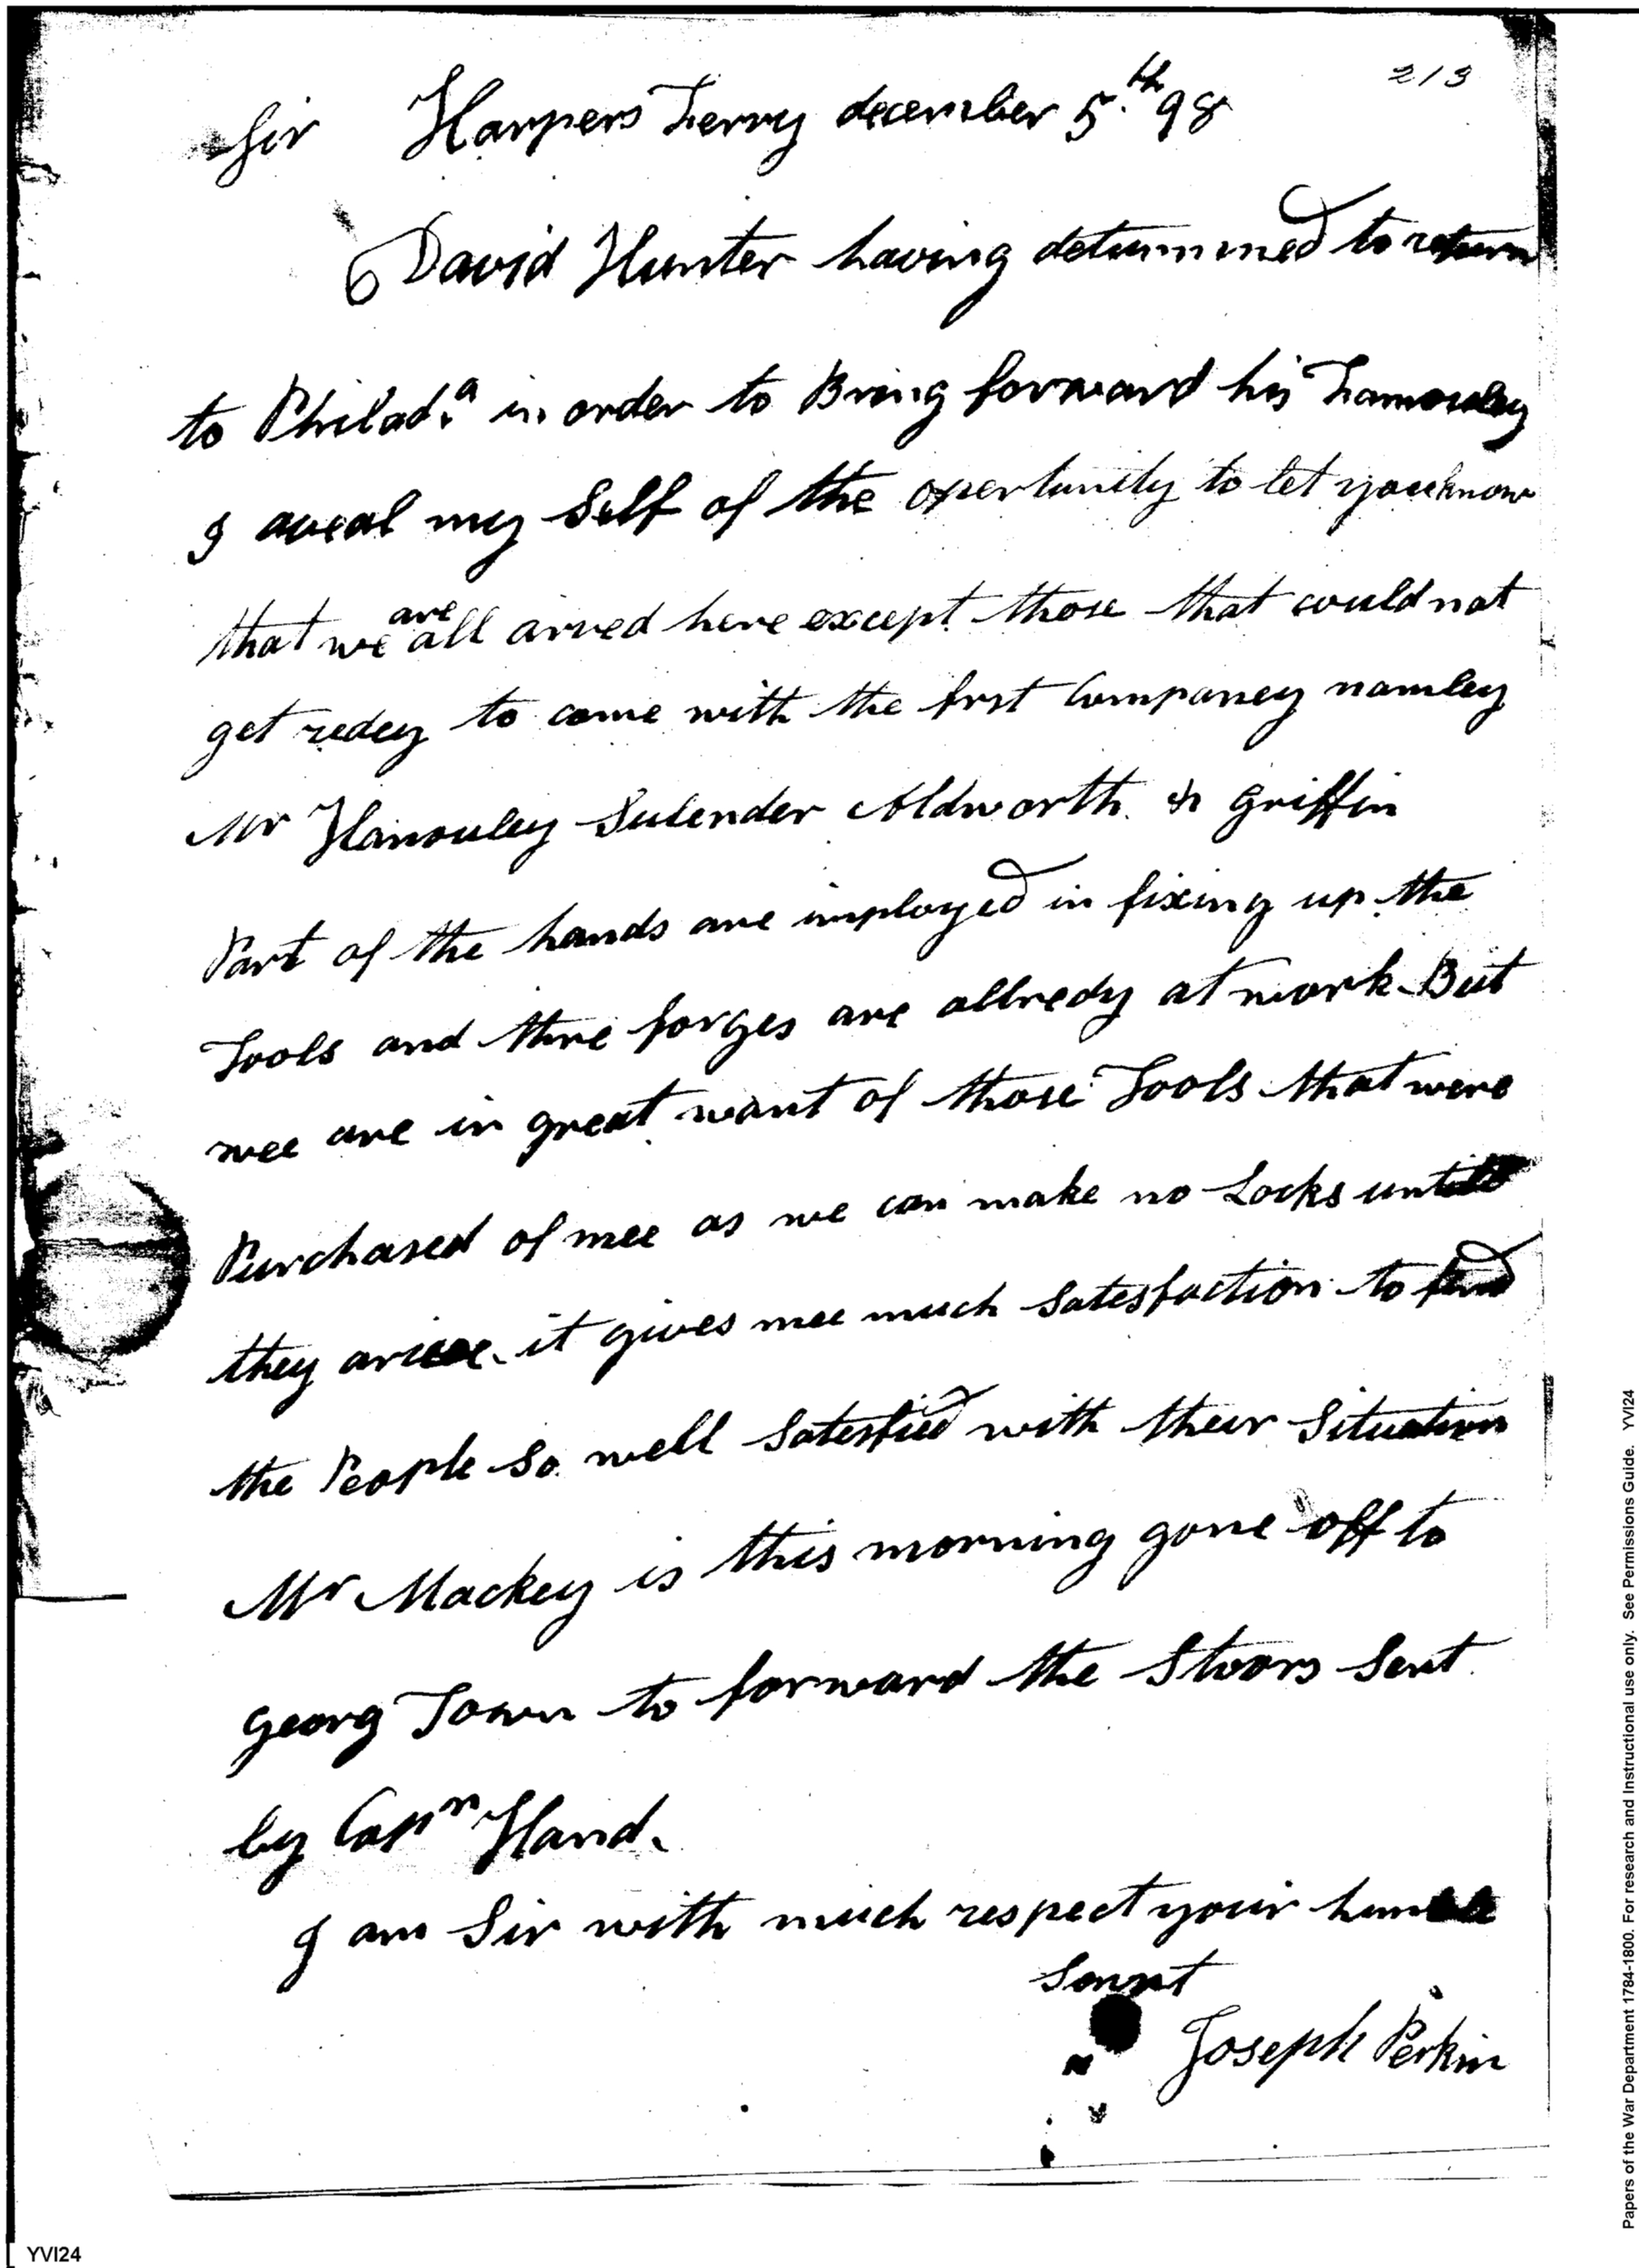 213
Sir Harpers Ferry december 5.th 98
David Hunter having determined to return
to Philad.a in order to Bring forward his
I aveal my Self of the opertunity to let you know
that we are all arived here except those that could not
get redey to come with the frst Companey namley
Mr Sulender Aldworth & Griffin
Part of the hands are imployed in fixing up the
Tools and thre forges are allredy at work But
wee are in great want of those Tools that were
Purchased of mee as we can make no Locks untill
they it gives mee much Satesfaction to find
the People so well Satesfied with their Situation
Mr Mackey is this morning gone off to
Georg Town to forward the Stoors Sent
by Capn Hand.
I am Sir with much respect your
Servnt
Joseph Perkin
YVI24
Papers of the War Department 1784-1800. For research and Instructional use only. See Permissions Guide. YVI24